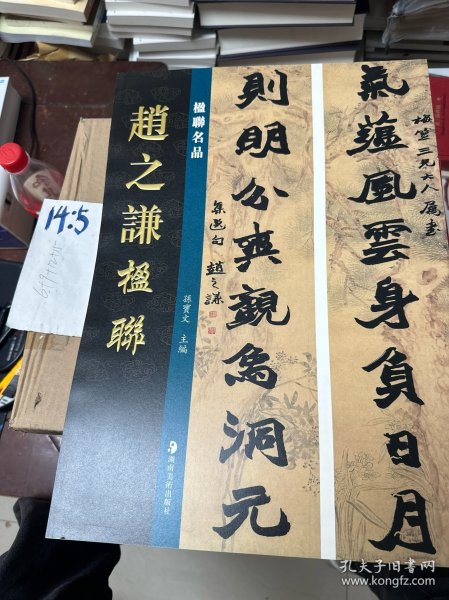 楹聯名品
趙之謙楹聯
孫寶文 主編
湖南美術出版社
氣蘊風雲身負日月
梅簃三兄大人屬書
則明公爽觀為洞元
集選句 趙之謙
14.5
孔夫子旧书网
www.kongfz.com